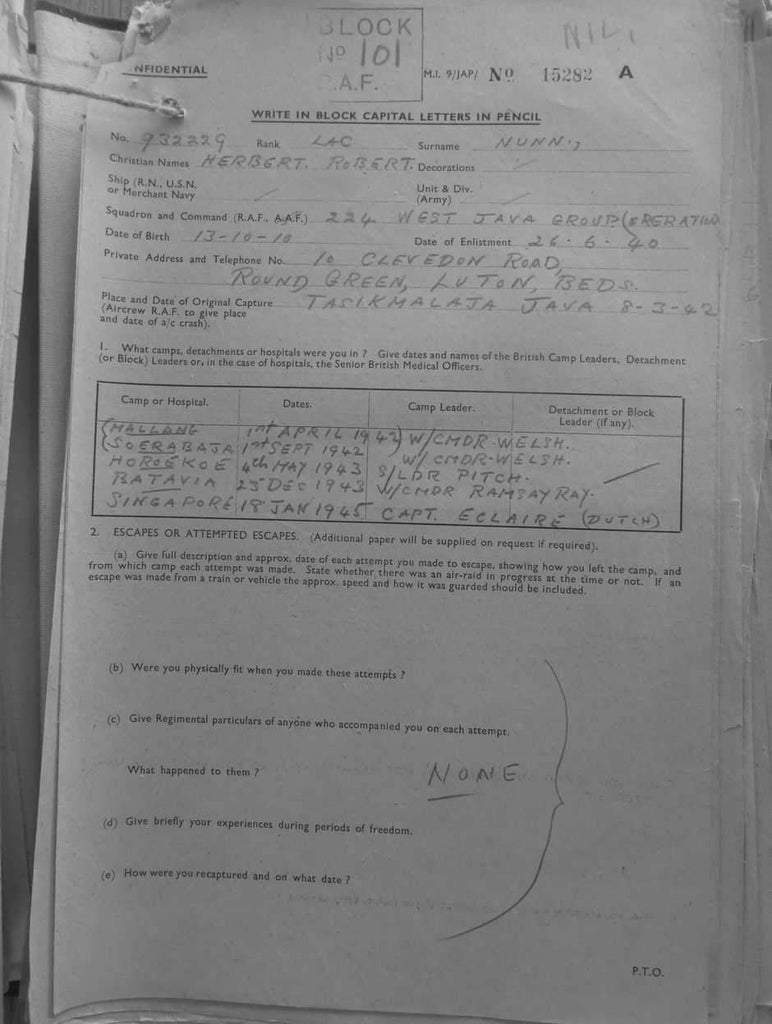 BLOCK
Nº 101
.A.F.
NIL.
NFIDENTIAL
M.I. 9/JAP/ Nº 15282 A
WRITE IN BLOCK CAPITAL LETTERS IN PENCIL
No. 932229 Rank LAC Surname NUNN.,
Christian Names HERBERT. ROBERT. Decorations
Ship (R.N., U.S.N.
or Merchant Navy
Unit & Div.
(Army)
Squadron and Command (R.A.F., A.A.F.) 224. WEST JAVA GROUP (OPERATION
Date of Birth 13-10-10 Date of Enlistment 26.6.40
Private Address and Telephone No. 10 CLEVEDON ROAD,
ROUND GREEN, LUTON, BEDS.
Place and Date of Original Capture TASIKMALAJA JAVA 8-3-42
(Aircrew R.A.F. to give place
and date of a/c crash).
1. What camps, detachments or hospitals were you in ? Give dates and names of the British Camp Leaders, Detachment
(or Block) Leaders or, in the case of hospitals, the Senior British Medical Officers.
Camp or Hospital. Dates. Camp Leader. Detachment or Block
Leader (if any).
(MALLANG 1st APRIL 1942) W/CMDR. WELSH.
(SOERABAJA 1st SEPT 1942 W/ CMDR. WELSH.
HOROEKOE 4th MAY 1943 S/LDR PITCH.
BATAVIA 23rd DEC 1943 W/CMDR RAMSAY RAY.
SINGAPORE 18 JAN 1945 CAPT. ECLAIRE (DUTCH)
2. ESCAPES OR ATTEMPTED ESCAPES. (Additional paper will be supplied on request if required).
(a) Give full description and approx. date of each attempt you made to escape, showing how you left the camp, and
from which camp each attempt was made. State whether there was an air-raid in progress at the time or not. If an
escape was made from a train or vehicle the approx. speed and how it was guarded should be included.
(b) Were you physically fit when you made these attempts ?
(c) Give Regimental particulars of anyone who accompanied you on each attempt.
What happened to them ?
NONE
(d) Give briefly your experiences during periods of freedom.
(e) How were you recaptured and on what date ?
P.T.O.